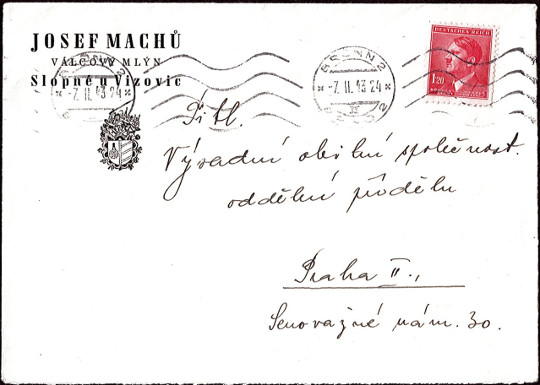 JOSEF MACHŮ
VÁLCOVÝ MLÝN
Slopné u Vizovic
BRÜNN 2
-7.II.43 24
BRÜNN 2
-7.II.43 24
DEUTSCHES REICH
1.20
Titl.
Výsadní obilní společnost.
oddělení přídělu
Praha II.,
Senovážné nám. 30.